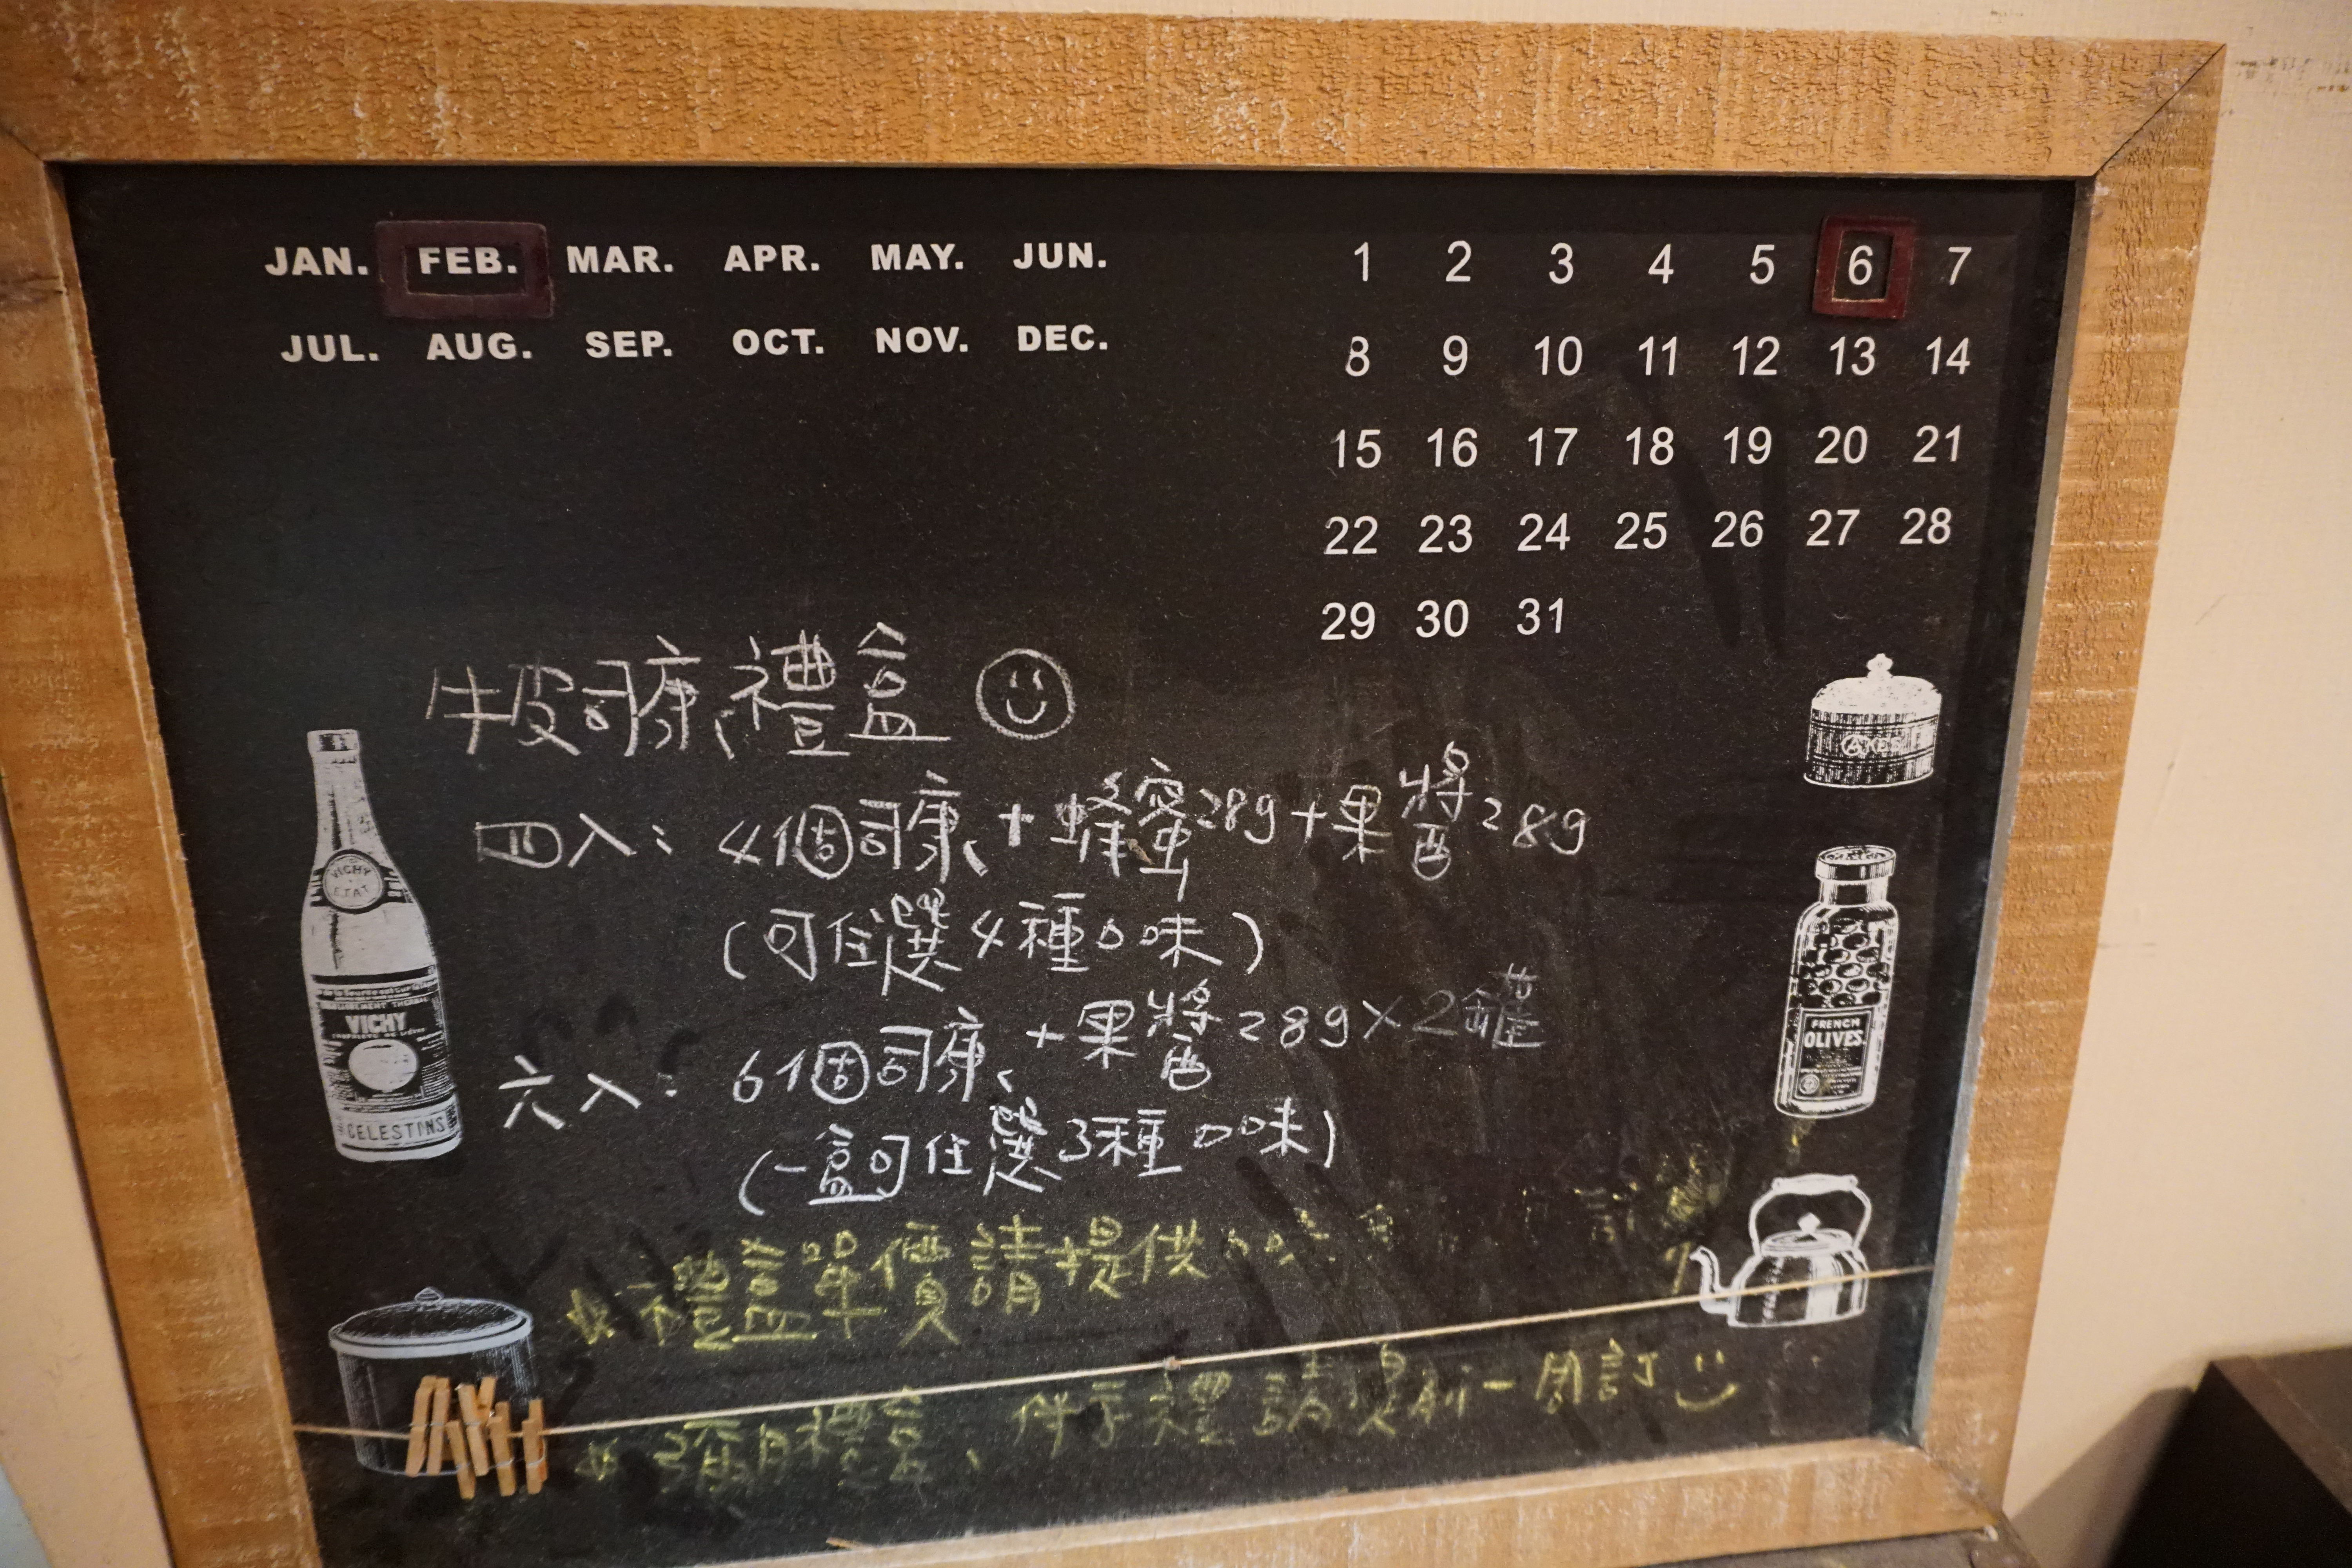 JAN. FEB. MAR. APR. MAY. JUN.
JUL. AUG. SEP. OCT. NOV. DEC.
1 2 3 4 5 6 7
8 9 10 11 12 13 14
15 16 17 18 19 20 21
22 23 24 25 26 27 28
29 30 31
牛皮司康禮盒
四入: 4個司康 + 蜂蜜28g + 果醬28g
(可任選4種口味)
六入: 6個司康 + 果醬28g×2罐
(一盒可任選3種口味)
禮盒單價請提供
彌月禮盒、伴手禮請提前一周訂
VICHY
ETAT
VICHY
CELESTINS
CAKES
FRENCH
OLIVES